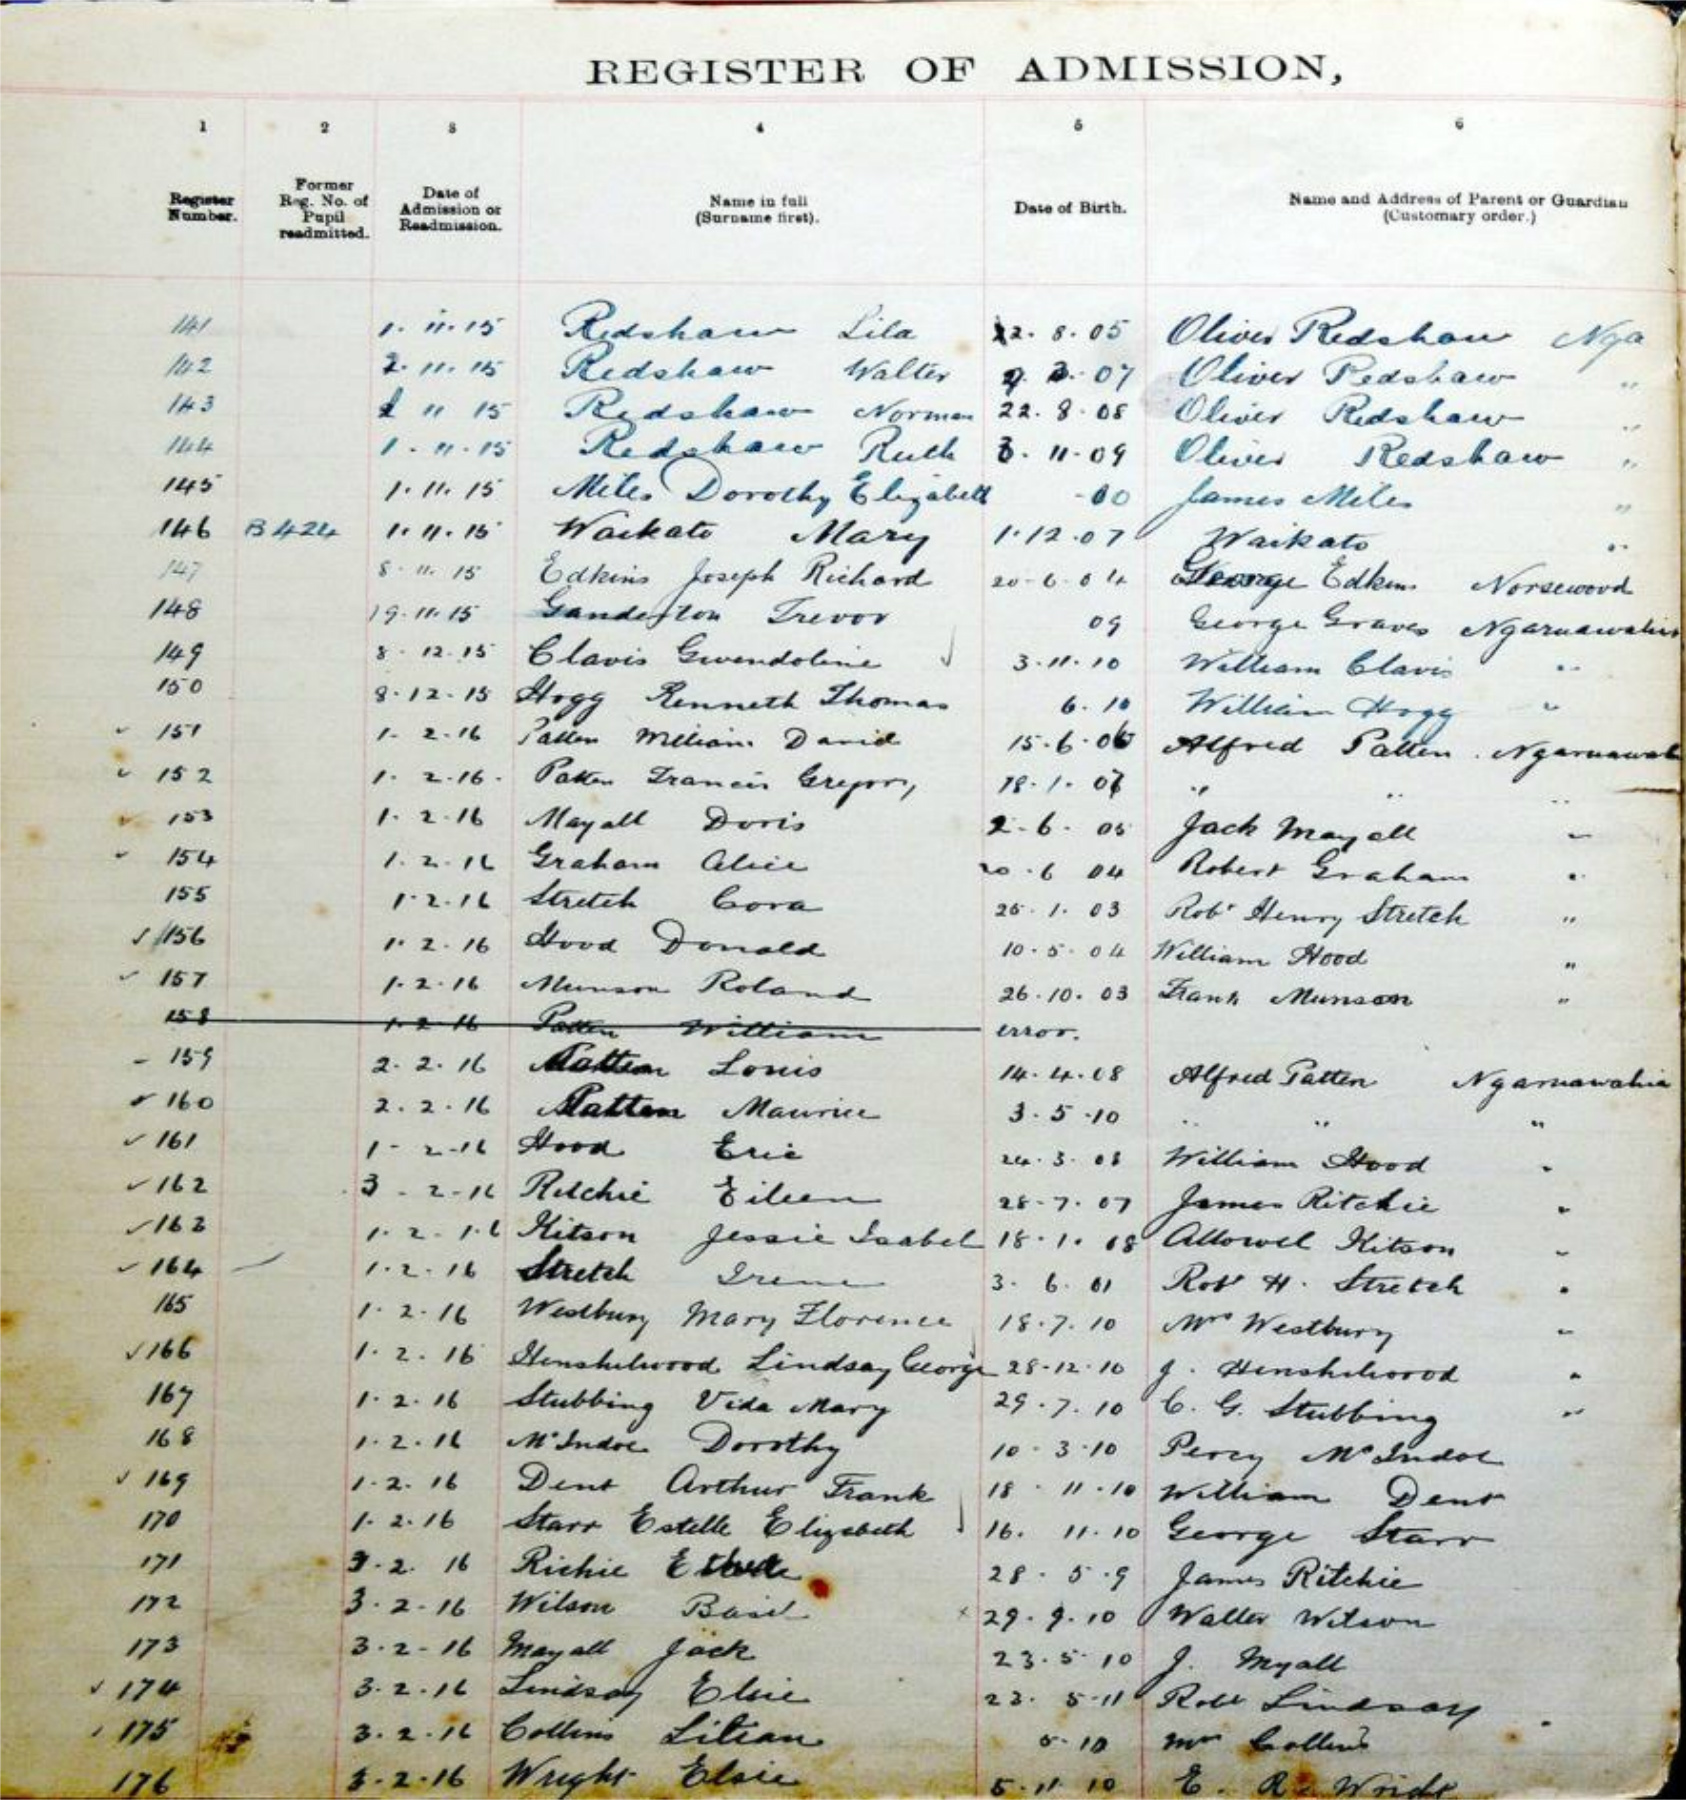 REGISTER OF ADMISSION,
1 2 3 4 5 6
Register Number. Former Reg. No. of Pupil readmitted. Date of Admission or Readmission. Name in full (Surname first). Date of Birth. Name and Address of Parent or Guardian (Customary order.)
141 1. 11. 15 Redshaw Lila 22. 8. 05 Oliver Redshaw Nga
142 2. 11. 15 Redshaw Walter 07 Oliver Redshaw "
143 1 11 15 Redshaw Norman 22. 8. 08 Oliver Redshaw "
144 1. 11. 15 Redshaw Ruth 3. 11. 09 Oliver Redshaw "
145 1. 11. 15 Miles Dorothy Elizabeth -00 James Miles "
146 B 424 1. 11. 15 Waikato Mary 1. 12. 07 Waikato "
147 8. 11. 15 Edkins Joseph Richard 20-6-04 George Edkins Norsewood
148 19. 11. 15 Ganderton Trevor 09 George Graves Ngaruawahia
149 8. 12. 15 Clavis Gwendoline 3. 11. 10 William Clavis "
150 8. 12. 15 Hogg Kenneth Thomas 6. 10 William Hogg "
151 1. 2. 16 Patten William David 15. 6. 05 Alfred Patten. Ngaruawah
152 1. 2. 16. Patten Francis Gregory 1. 07 " " "
153 1. 2. 16 Mayall Doris 2. 6. 05 Jack Mayall "
154 1. 2. 16 Graham Alice 20. 6 04 Robert Graham "
155 1. 2. 16 Stretch Cora 25. 1. 03 Robt Henry Stretch "
156 1. 2. 16 Hood Donald 10. 5. 04 William Hood "
157 1. 2. 16 Munson Roland 26. 10. 03 Frank Munson "
158 1. 2. 16 Patten William error.
159 2. 2. 16 Patten Louis 14. 4. 08 Alfred Patten Ngaruawahia
160 2. 2. 16 Patten Maurice 3. 5. 10 " " "
161 1. 2. 16 Hood Eric 24. 3. 08 William Hood "
162 3. 2. 16 Ritchie Eileen 28. 7. 07 James Ritchie "
163 1. 2. 16 Kitson Jessie Isabel 18. 1. 08 Kitson "
164 1. 2. 16 Stretch Irene 3. 6. 01 Robt H. Stretch "
165 1. 2. 16 Westbury Mary Florence 18. 7. 10 Mrs Westbury "
166 1. 2. 16 Henshilwood Lindsay George 28. 12. 10 J. Henshilwood "
167 1. 2. 16 Stubbing Vida Mary 29. 7. 10 C. G. Stubbing "
168 1. 2. 16 McIndoe Dorothy 10. 3. 10 Percy McIndoe
169 1. 2. 16 Dent Arthur Frank 18. 11. 10 William Dent
170 1. 2. 16 Starr Estelle Elizabeth 16. 11. 10 George Starr
171 3. 2. 16 Richie 28. 5. 9 James Ritchie
172 3. 2. 16 Wilson Basil 29. 9. 10 Walter Wilson
173 3. 2. 16 Mayall Jack 23. 5. 10 J. Myall
174 3. 2. 16 Lindsay Elsie 23. 5. 11 Robt Lindsay
175 3. 2. 16 Collins Lilian 5. 10 Mrs Collins
176 3. 2. 16 Wright Elsie 5. 11. 10 E. R. Wright